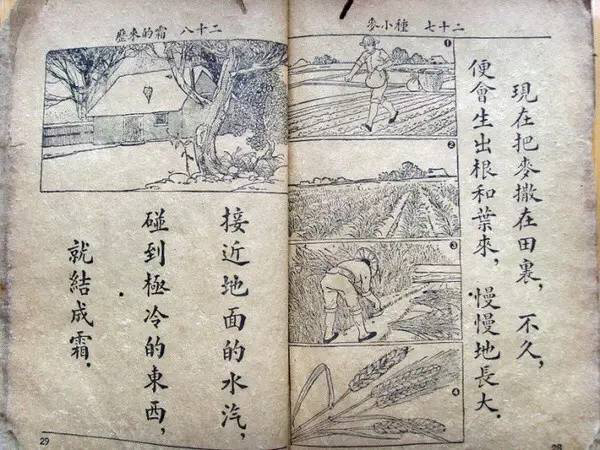 二十七 種小麥
現在把麥撒在田裏，不久，
便會生出根和葉來，慢慢地長大．
1
2
3
4
28
二十八 霜的來歷
接近地面的水汽，
碰到極冷的東西，
就結成霜．
29